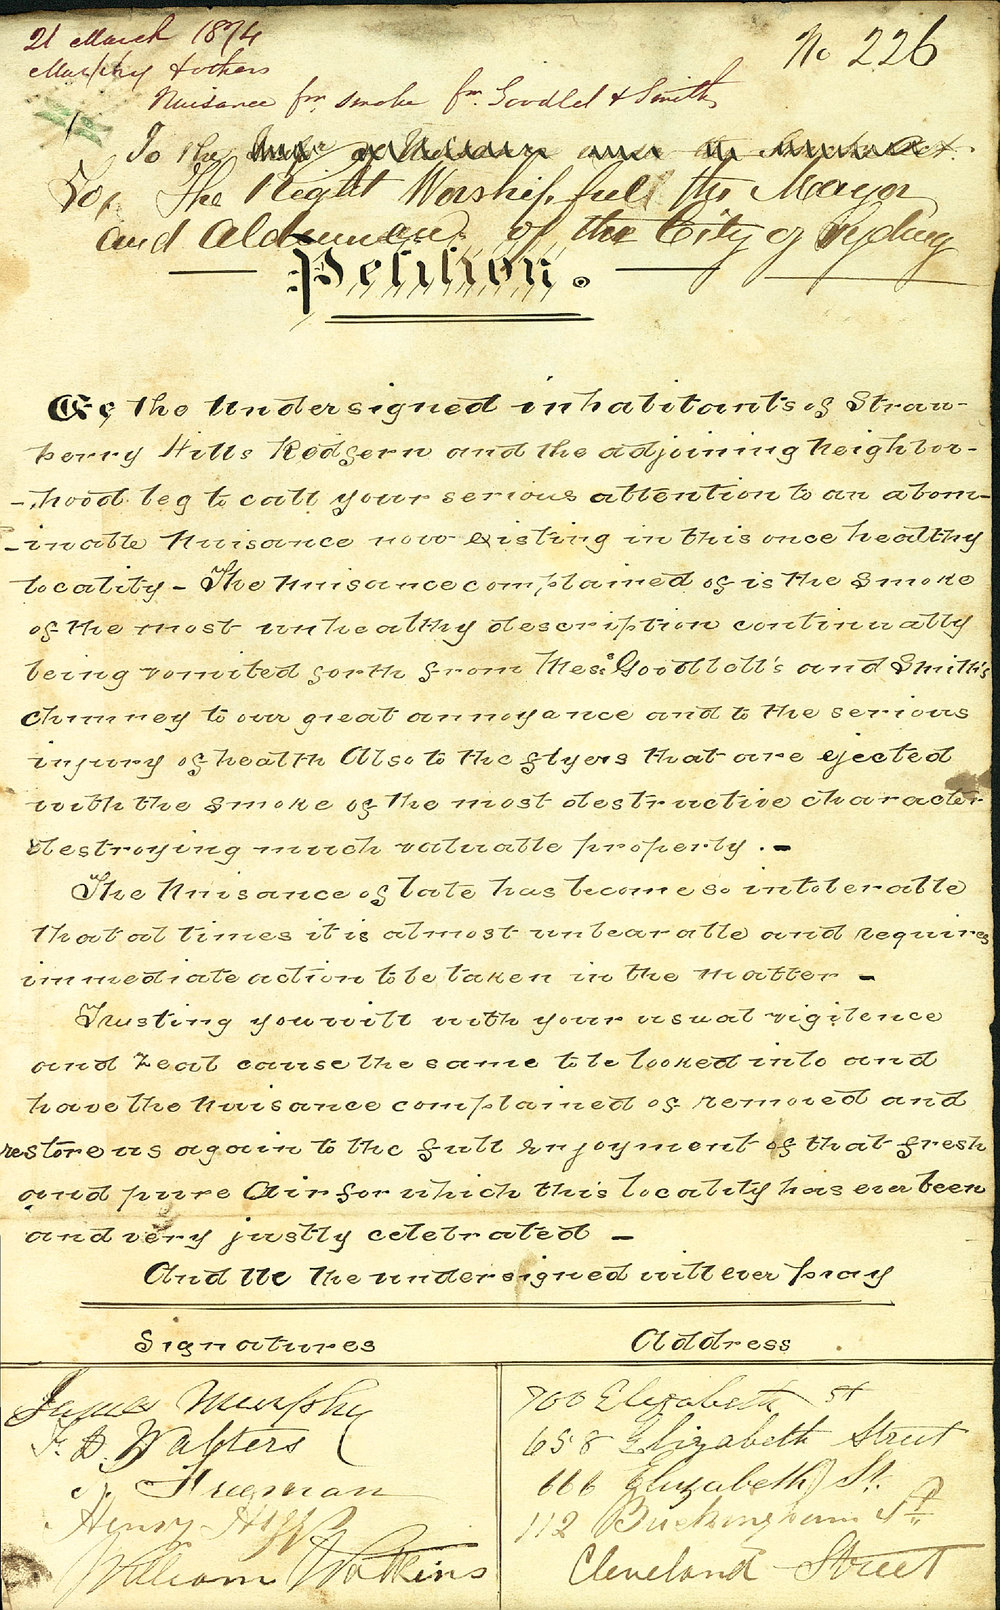 21 March 1874
No 226
Murphy & others
Nuisance fm smoke fm Goodlet & Smith
To the
To, The Right Worshipfull the Mayor
and Aldermen of the City of Sydney
Petition.
We the Undersigned inhabitants of Straw-
berry Hills Redfern and the adjoining neighbor-
-hood beg to call your serious attention to an abom-
-inable Nuisance now existing in this once healthy
locality - The Nuisance complained of is the Smoke
of the most unhealthy description continually
being vomited forth from Mess.s Goodlett's and Smith's
chimney to our great annoyance and to the serious
injury of health Also to the flyers that are ejected
with the smoke of the most destructive character
destroying much valuable property. -
The Nuisance of late has become so intolerable
that at times it is almost unbearable and requires
immediate action to be taken in the matter -
Trusting you will with your usual vigilence
and Zeal cause the same to be looked into and
have the Nuisance complained of removed and
restore us again to the full enjoyment of that fresh
and pure Air for which this locality has ever been
and very justly celebrated -
And We the undersigned will ever pray
Signatures Address
James Murphy 700 Elizabeth St
F. D. Walters 658 Elizabeth Street
Freeman 666 Elizabeth St.
Henry 112 Buckingham St.
William Watkins Cleveland Street